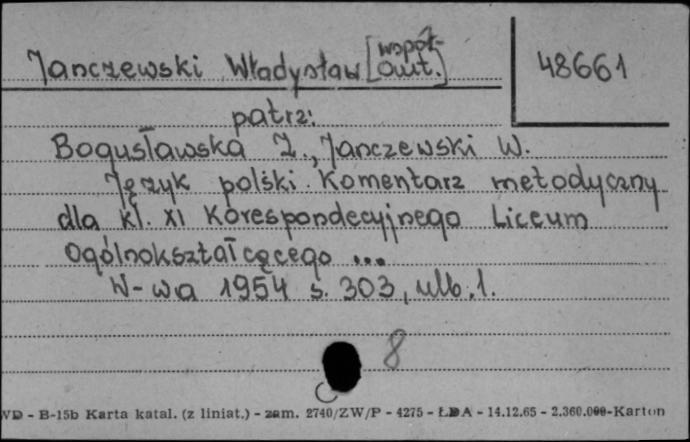 Janczewski Władysław [współ-
aut.]
48661
patrz:
Bogusławska Z., Janczewski W.
Język polski. Komentarz metodyczny
dla kl. XI Korespondecyjnego Liceum
Ogólnokształcącego ...
W-wa 1954 s. 303, ulb. 1.
8
WD - B-15b Karta katal. (z liniat.) - zam. 2740/ZW/P - 4275 - ŁDA - 14.12.65 - 2.360.000-Karton